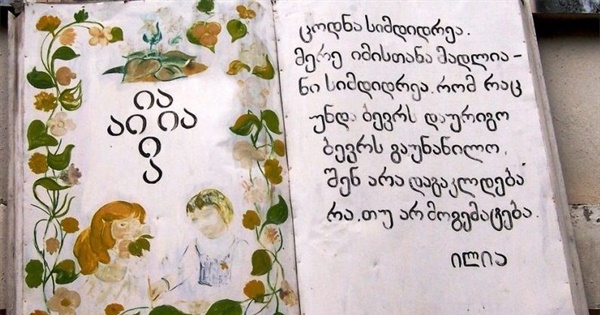 ია
აი ია
ი
ა
ცოდნა სიმდიდრეა.
მერე იმისთანა მადლია-
ნი სიმდიდრეა. რომ რაც
უნდა ბევრს დაურიგო
ბევრს გაუნანილო,
შენ არა დაგაკლდება
რა, თუ არ მოგემატება.
ილია